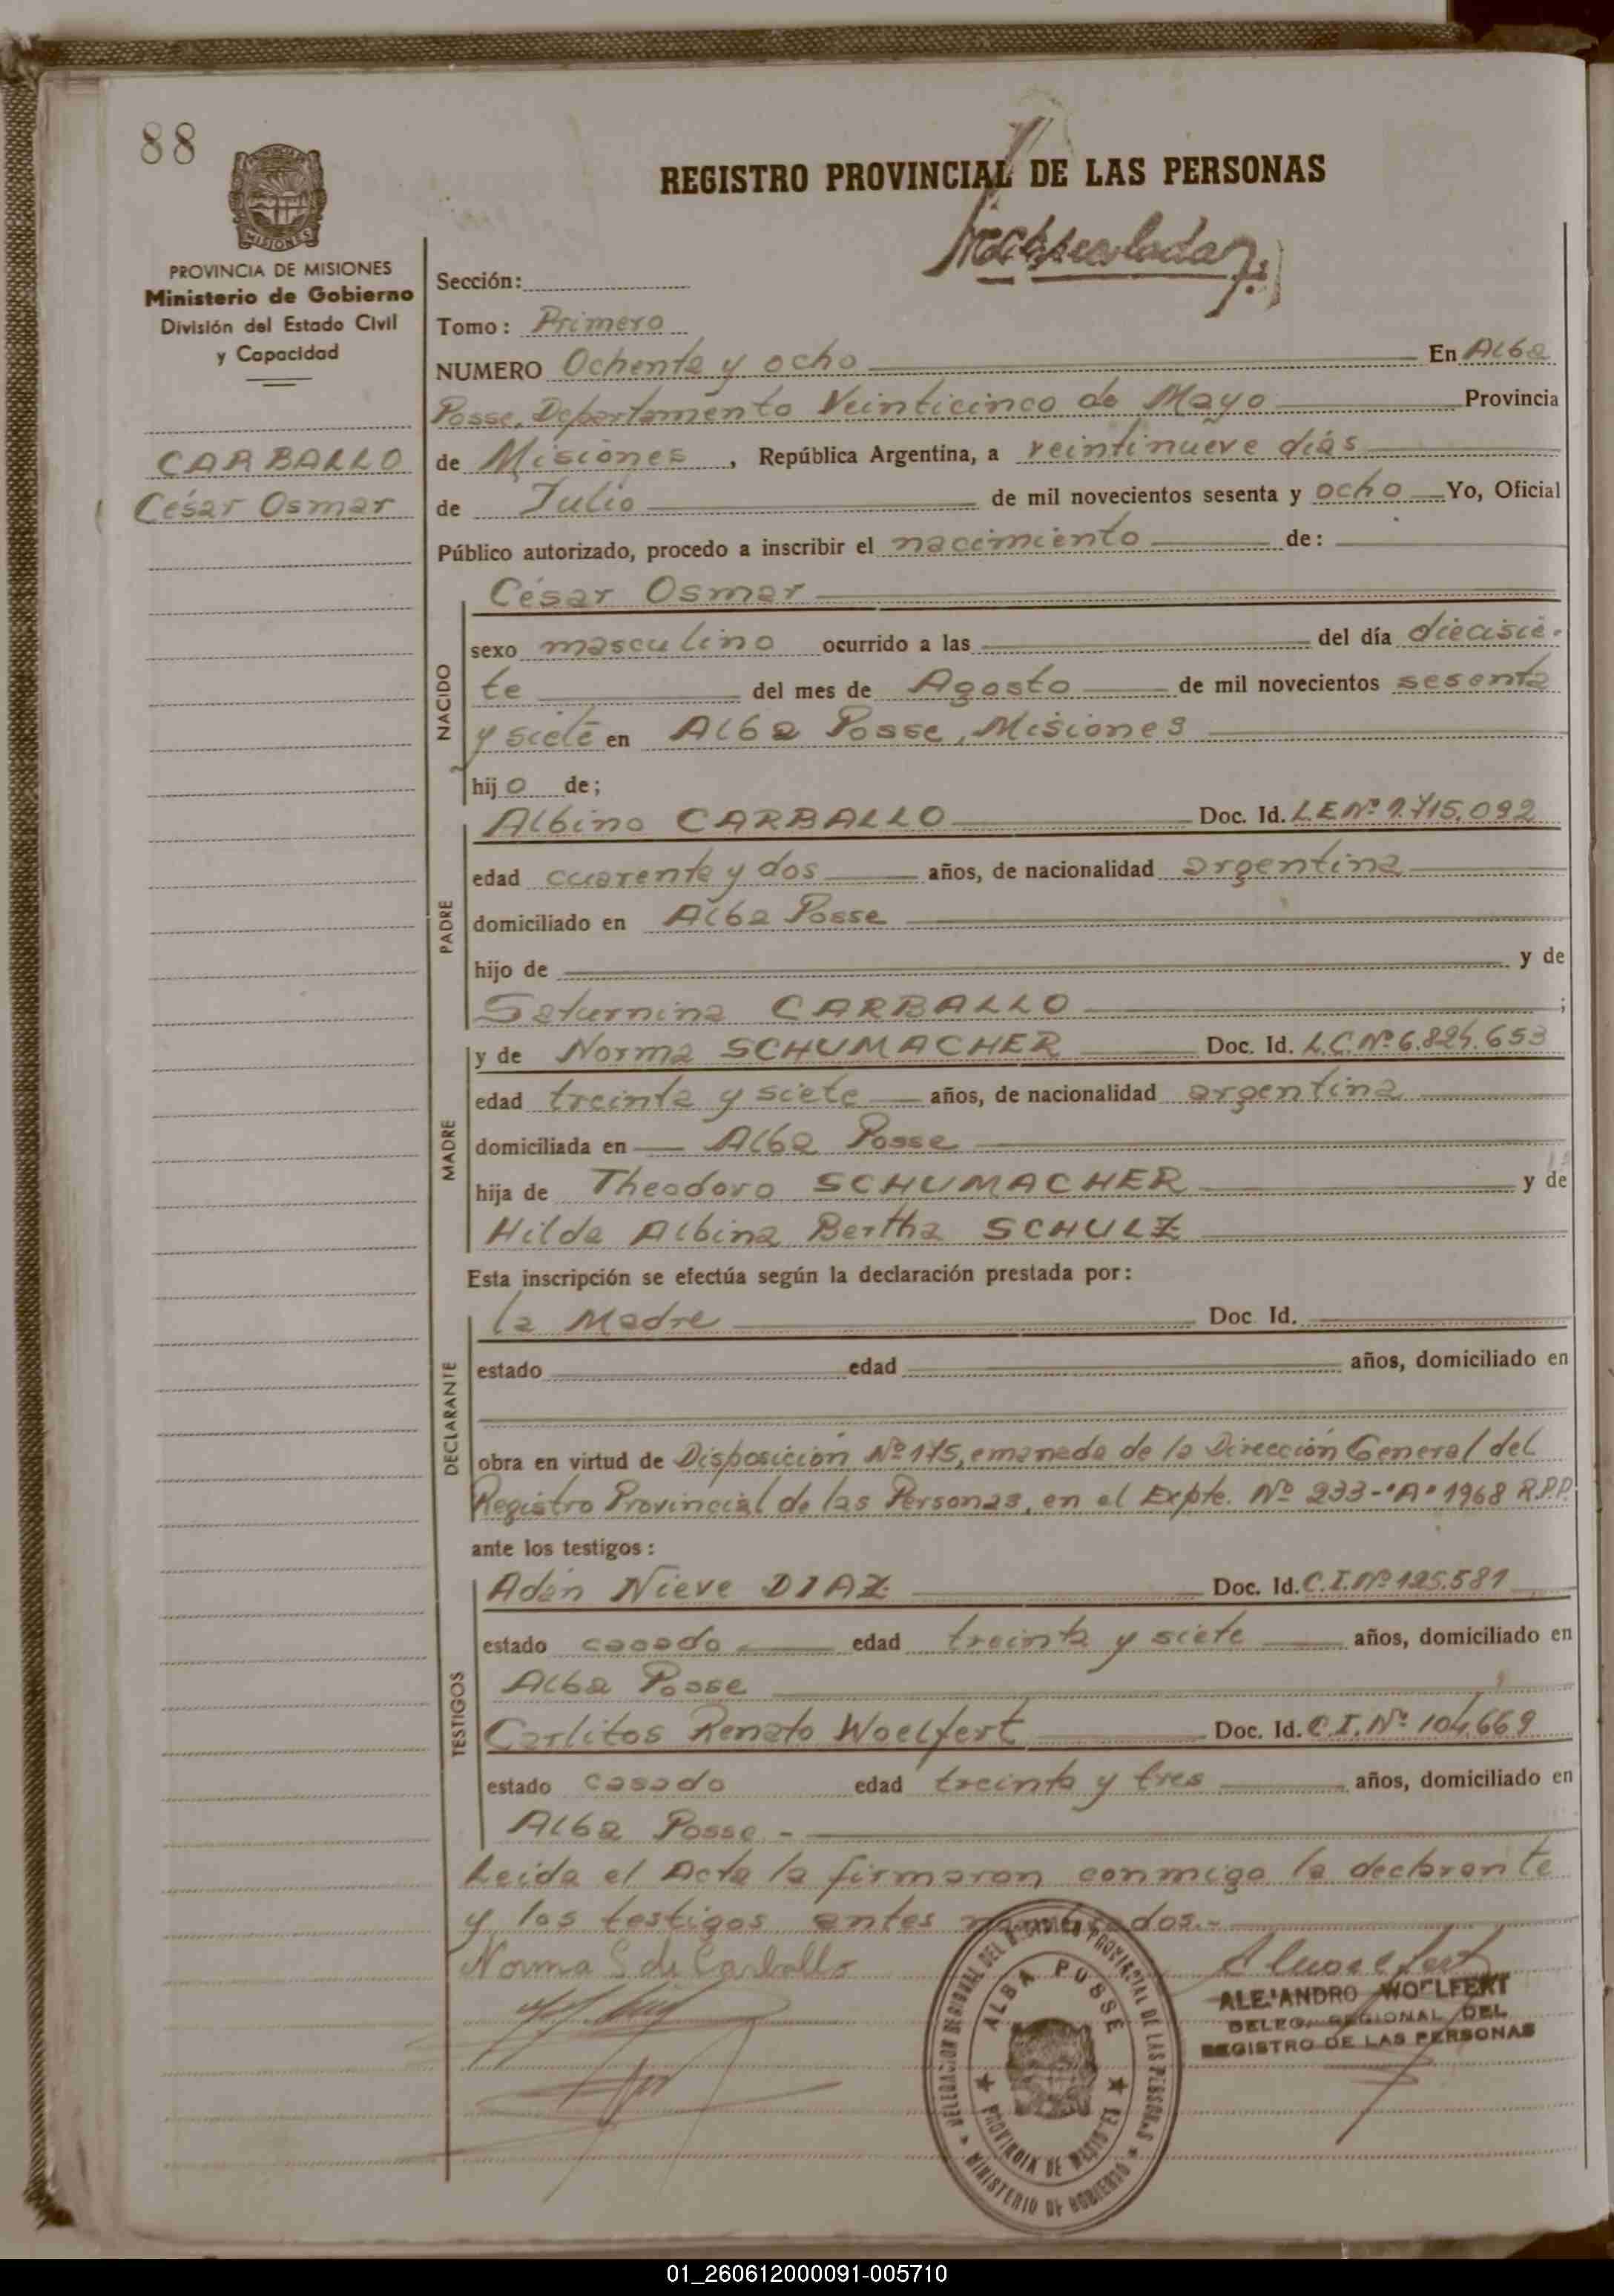 88
REGISTRO PROVINCIAL DE LAS PERSONAS
MISIONES
PROVINCIA DE MISIONES
Ministerio de Gobierno
División del Estado Civil
y Capacidad
CARBALLO
César Osmar
Sección:
Tomo: Primero
NUMERO Ochenta y ocho En Alba
Posse, Departamento Veinticinco de Mayo Provincia
de Misiones, República Argentina, a veintinueve dias
de Julio de mil novecientos sesenta y ocho Yo, Oficial
Público autorizado, procedo a inscribir el nacimiento de:
César Osmar
NACIDO
sexo masculino ocurrido a las del día diecisie-
te del mes de Agosto de mil novecientos sesenta
y siete en Alba Posse, Misiones
hijo de;
PADRE
Albino CARBALLO Doc. Id. L.E.Nº 1.715.092
edad cuarenta y dos años, de nacionalidad argentina
domiciliado en Alba Posse
hijo de y de
Saturnina CARBALLO ;
MADRE
y de Norma SCHUMACHER Doc. Id. L.C.Nº 6.824.653
edad treinta y siete años, de nacionalidad argentina
domiciliada en Alba Posse
hija de Theodoro SCHUMACHER y de
Hilda Albina Bertha SCHULZ
Esta inscripción se efectúa según la declaración prestada por:
DECLARANTE
la Madre Doc. Id.
estado edad años, domiciliado en
obra en virtud de Disposición Nº 175, emanada de la Dirección General del
Registro Provincial de las Personas, en el Expte. Nº 233-"A" 1968 R.P.P.
ante los testigos:
TESTIGOS
Adán Nieve DIAZ Doc. Id. C.I.Nº 125.581
estado casado edad treinta y siete años, domiciliado en
Alba Posse
Carlitos Renato Woelfert Doc. Id. C.I.Nº 104.669
estado casado edad treinta y tres años, domiciliado en
Alba Posse -
Leida el Acta la firmaron conmigo la declarante
y los testigos antes nombrados.-
Norma S de Carballo
ALEJANDRO WOELFERT
DELEG. REGIONAL DEL
REGISTRO DE LAS PERSONAS
DELEGACION REGIONAL DEL REGISTRO PROVINCIAL DE LAS PERSONAS
ALBA POSSE
PROVINCIA DE MISIONES
MINISTERIO DE GOBIERNO
01_260612000091-005710